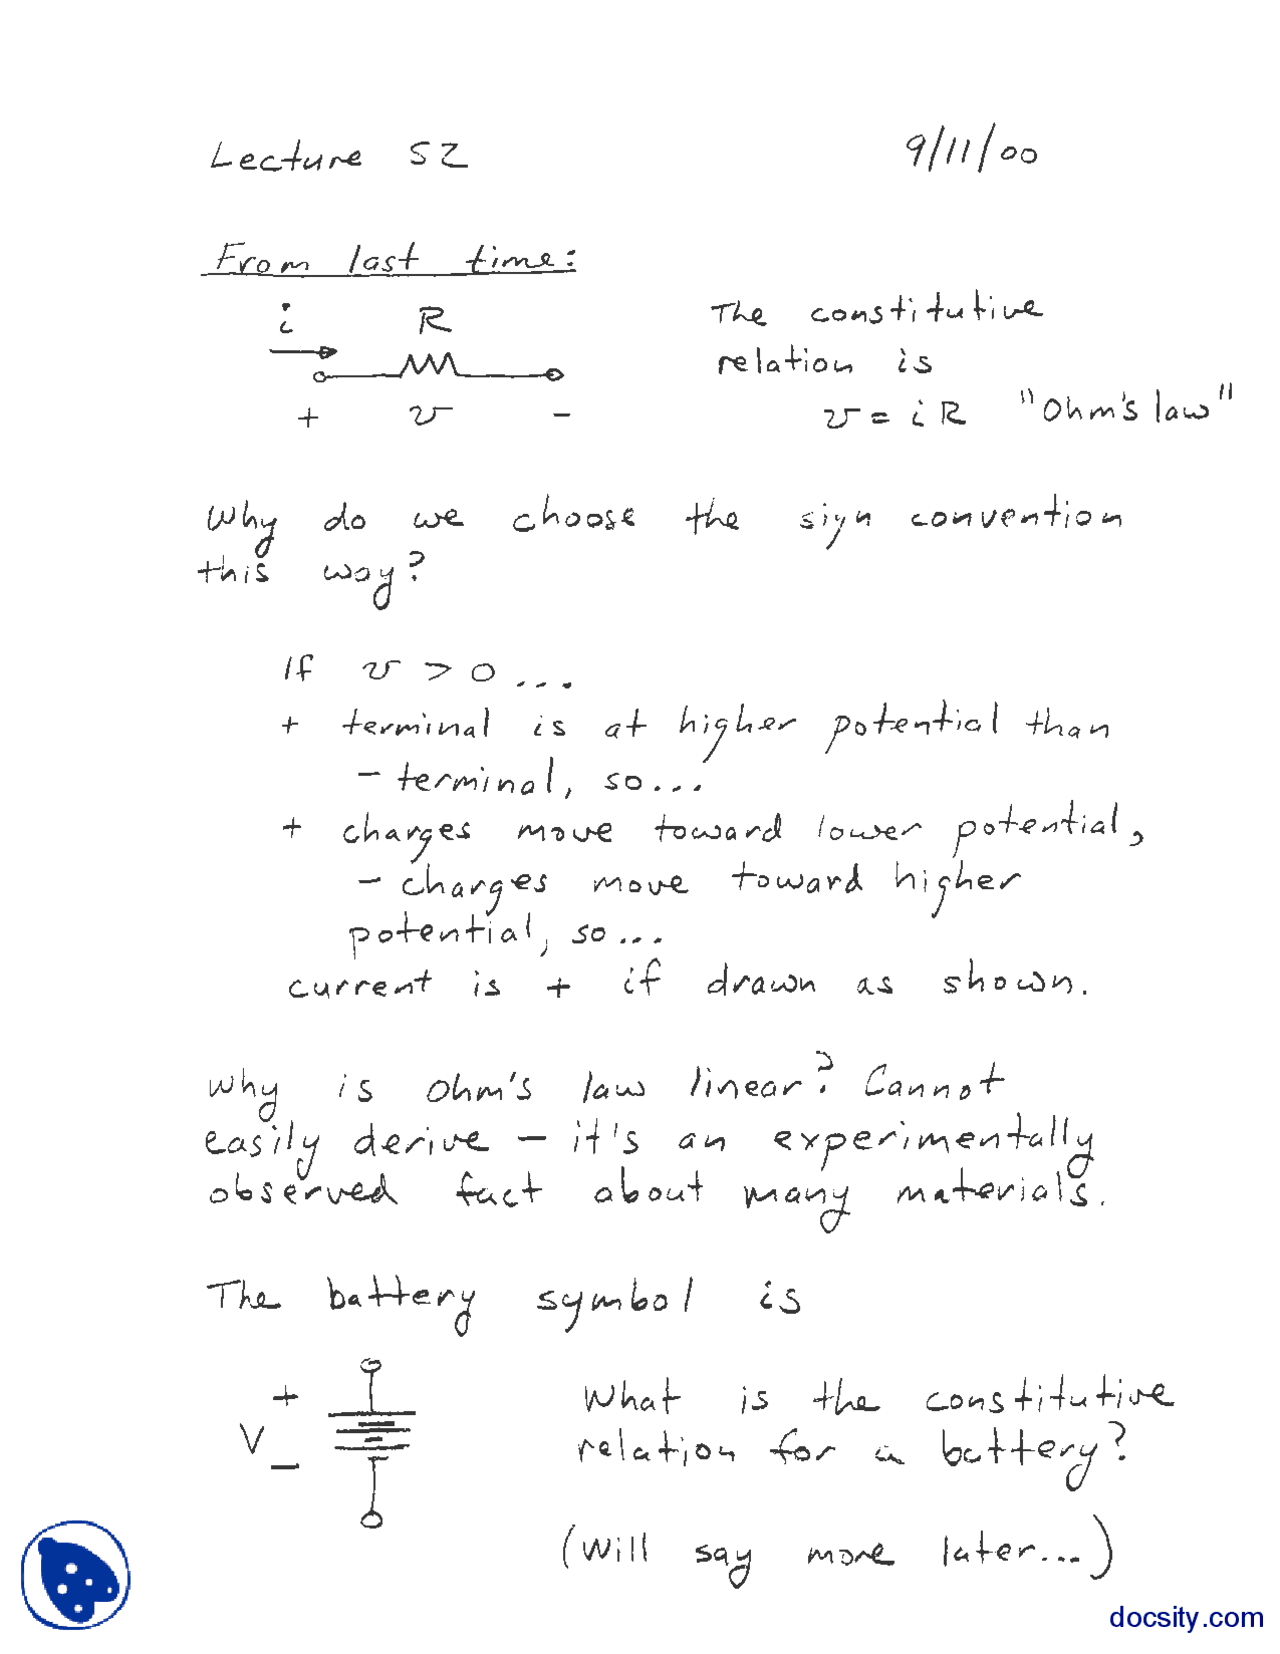 Lecture S2 9/11/00
From last time:
i R
+ v -
The constitutive
relation is
v = iR "Ohm's law"
Why do we choose the sign convention
this way?
If v > 0 ...
+ terminal is at higher potential than
- terminal, so...
+ charges move toward lower potential,
- charges move toward higher
potential, so...
current is + if drawn as shown.
Why is Ohm's law linear? Cannot
easily derive - it's an experimentally
observed fact about many materials.
The battery symbol is
+
V
-
What is the constitutive
relation for a battery?
(Will say more later...)
docsity.com